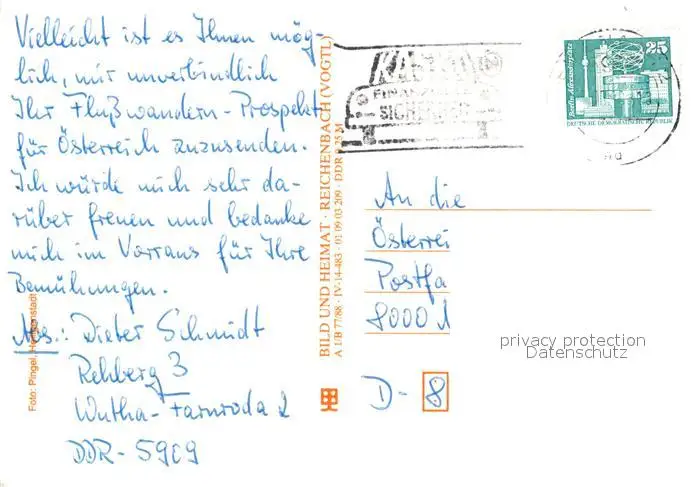 Vielleicht ist es Ihnen mög-
lich, mir unverbindlich
Ihr Flußwandern-Prospekt
für Österreich zuzusenden.
Ich würde mich sehr da-
rüber freuen und bedanke
mich im Vorraus für Ihre
Bemühungen.
Abs.: Dieter Schmidt
Rehberg 3
Wutha-Farnroda 2
DDR-5909
Foto: Pingel,
BILD UND HEIMAT · REICHENBACH (VOGTL)
A 1/B 77/88 · IV-14-483 · 01 09 03 209 · DDR 0,25 M
25
Berlin, Alexanderplatz
DEUTSCHE DEMOKRATISCHE REPUBLIK
An die
Österrei
Postfa
8000
D-8
privacy protection
Datenschutz